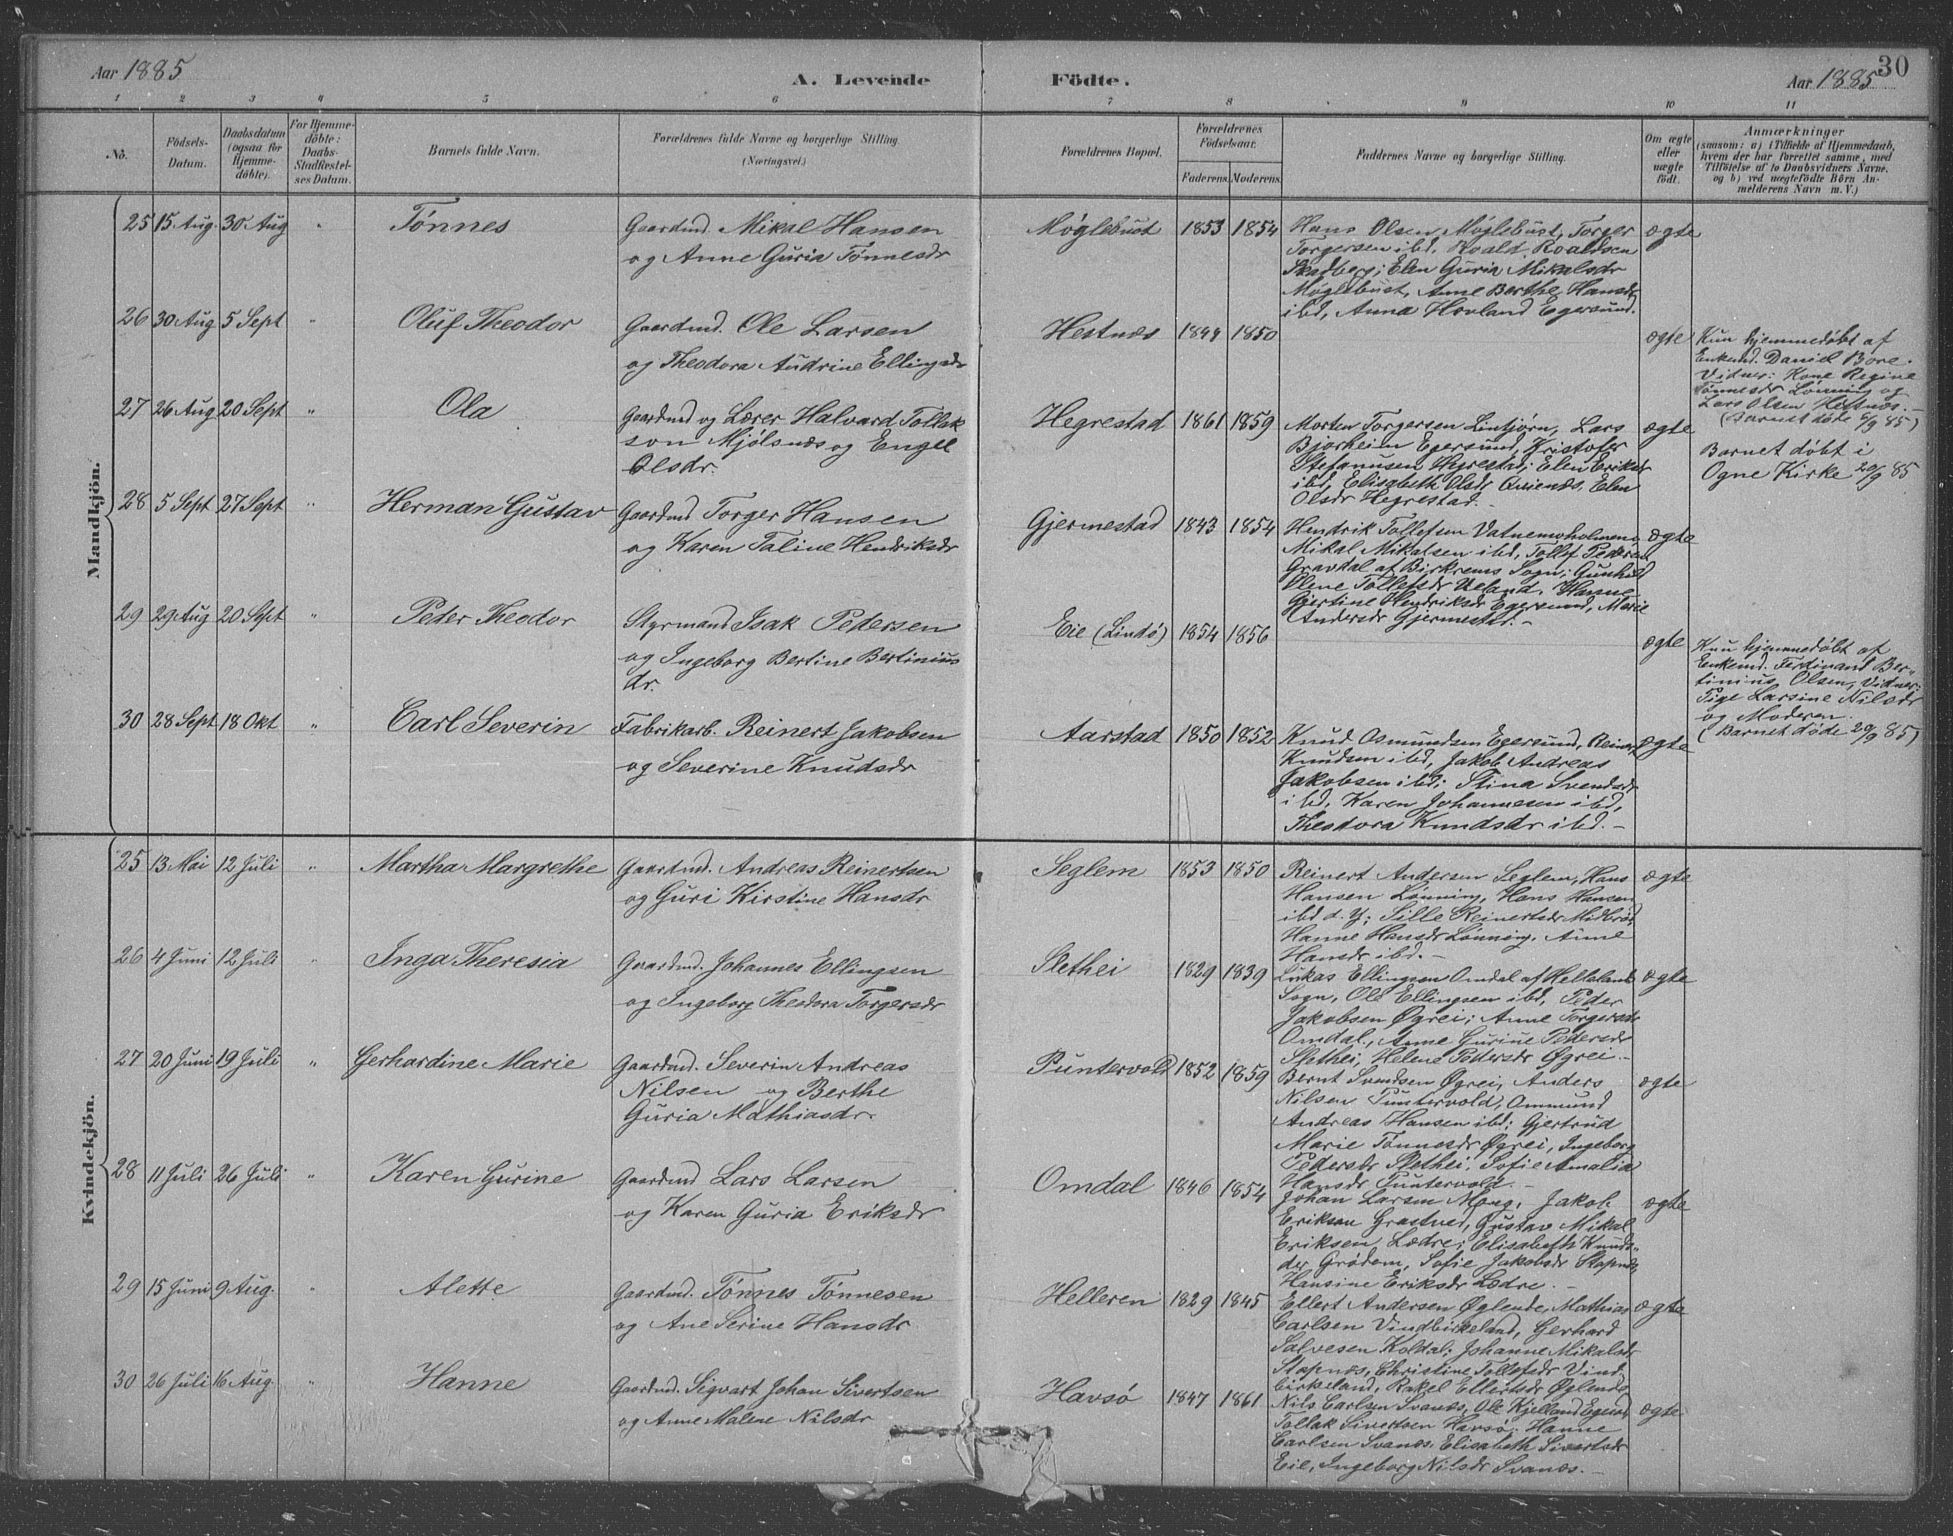 Aar 1885
A. Levende
Födte.
Aar 1885
30
1 2 3 4 5 6 7 8 9 10 11
No.
Födsels-Datum.
Daabsdatum (ogsaa for Hjemme-döbte).
For Hjemme-döbte: Daabs-Stadfæstel-ses Datum.
Barnets fulde Navn.
Forældrenes fulde Navne og borgerlige Stilling (Næringsvei.)
Forældrenes Bopæl.
Forældrenes Födselsaar.
Faderens. Moderens.
Faddernes Navne og borgerlige Stilling.
Om ægte eller uægte födt.
Anmærkninger
(saasom: a) i Tilfælde af Hjemmedaab,
hvem der har forrettet samme, med
Tilföielse af to Daabsvidners Navne.
og b) ved uægtefödte Börn An-
melderens Navn m. V.)
Mandkjön.
25 15 Aug. 30 Aug " Tønnes
Gaardmd. Mikal Hansen
og Anne Guria Tønnesdr
Møglebust 1853 1854
Hans Olsen Møglebust, Torger
Torgersen ibd, Roald Roaldsen
Skadberg; Elen Guria Mikalsdr
Møglebust, Anne Berthe Hansdr
ibd, Anna Hovland Egersund.
ægte
26 30 Aug 5 Sept " Oluf Theodor
Gaardmd. Ole Larsen
og Theodora Audrine Ellingsdr
Hestnæs 1849 1850
ægte
Kun hjemmedøbt af
Enkemd. Daniel Bore.
Vidner: Kone Regine
Tønnesdr Lønning og
Lars Olsen Hestnæs.
(Barnet døde 8/9 85)
27 26 Aug 20 Sept " Ola
Gaardmd og Lærer Halvard Tollak
son Mjølsnæs og Engel
Olsdr.
Hegrestad 1861 1859
Morten Torgersen Lintjørn, Lars
Bjorheim Egersund, Kristofer
Stefanusen Hegrestad; Elen Eriksdr
ibd, Elisabeth Olsdr, Elen
Olsdr Hegrestad.
ægte
Barnet døbt i
Ogne Kirke 20/9 85
28 5 Sept 27 Sept " Herman Gustav
Gaardmd Torger Hansen
og Karen Taline Hendriksdr
Gjermestad 1843 1854
Hendrik Tollefsen Vatnemoholmen,
Mikal Mikalsen ibd, Tollef Peders
Gravdal af Birkrems Sogn; Gunhild
Olene Tollefsdr Ueland, Hanne
Gjertine Hendriksdr Egersund, Marie
Andersdr Gjermestad.
ægte
29 29 Aug 20 Sept " Peder Theodor
Styrmand Isak Pedersen
og Ingeborg Bertine Bertinius
dr.
Eie (Lindø) 1854 1856
ægte
Kun hjemmedøbt af
Enkemd. Ferdinand Ber-
tinius Olsen, Vidner:
Pige Larsine Nilsdr
og Moderen.
(Barnet døde 20/9 85)
30 28 Sept 18 Okt " Carl Severin
Fabrikarb. Reinert Jakobsen
og Severine Knudsdr
Aarstad 1850 1852
Knud Osmundsen Egersund, Reinert
Knudsen ibd, Jakob Andreas
Jakobsen ibd; Stina Svendsdr
ibd, Karen Johannesen ibd,
Theodora Knudsdr ibd.
ægte
Kvindekjön.
25 13 Mai 12 Juli " Martha Margrethe
Gaardmd. Andreas Reinertsen
og Guri Kirstine Hansdr
Seglem 1853 1850
Reinert Andersen Seglem, Hans
Hansen Lønning, Hans Hansen
ibd d. Y; Sille Reinertsdr Midbrød
Hanne Hansdr Lønning, Anne
Hansdr ibd.
ægte
26 4 Juni 12 Juli " Inga Theresia
Gaardmd. Johannes Ellingsen
og Ingeborg Theodora Torgersdr
Slethei 1829 1839
Lukas Ellingsen Omdal af Hellelands
Sogn, Ole Ellingsen ibd, Peder
Jakobsen Øgrei; Anne Torgersdr
Omdal, Anne Gurine Pedersdr
Slethei, Helene Pedersdr Øgrei.
ægte
27 20 Juni 19 Juli " Gerhardine Marie
Gaardmd. Severin Andreas
Nilsen og Berthe
Guria Mathiasdr.
Puntervold 1852 1859
Bernt Svendsen Øgrei, Anders
Nilsen Puntervold, Ommund
Andreas Hansen ibd; Gjertrud
Marie Tønnesdr Øgrei, Ingeborg
Pedersdr Slethei, Sofie Amalia
Hansdr Puntervold.
ægte
28 11 Juli 26 Juli " Karen Gurine
Gaardmd Lars Larsen
og Karen Guria Eriksdr
Omdal 1846 1854
Johan Larsen Mong, Jakob
Eriksen Grastved, Gustav Mikal
Eriksen Lædre; Elisabeth Knuds-
der Grødem, Sofie Jakobsdr Stapnæs
Hansine Eriksdr Lædre.
ægte
29 15 Juni 9 Aug. " Alette
Gaardmd. Tønnes Tønnesen
og Ane Serine Hansdr
Helleren 1829 1845
Ellert Andersen Øglende, Mathias
Carlsen Vindbirkeland, Gerhard
Salvesen Koldal; Johanne Mikalsdr
Stapnæs, Christine Tollefsdr Vind
birkeland, Rakel Ellertsdr Øglende
ægte
30 26 Juli 16 Aug. " Hanne
Gaardmd. Sigvart Johan Sivertsen
og Anne Malene Nilsdr
Havsø 1847 1861
Nils Carlsen Svanæs, Ole Kjelland Egersd,
Tollak Sivertsen Havsø; Hanne
Carlsen Svanæs, Elisabeth Sivertsdr
Eie, Ingeborg Nilsdr Svanæs.
ægte